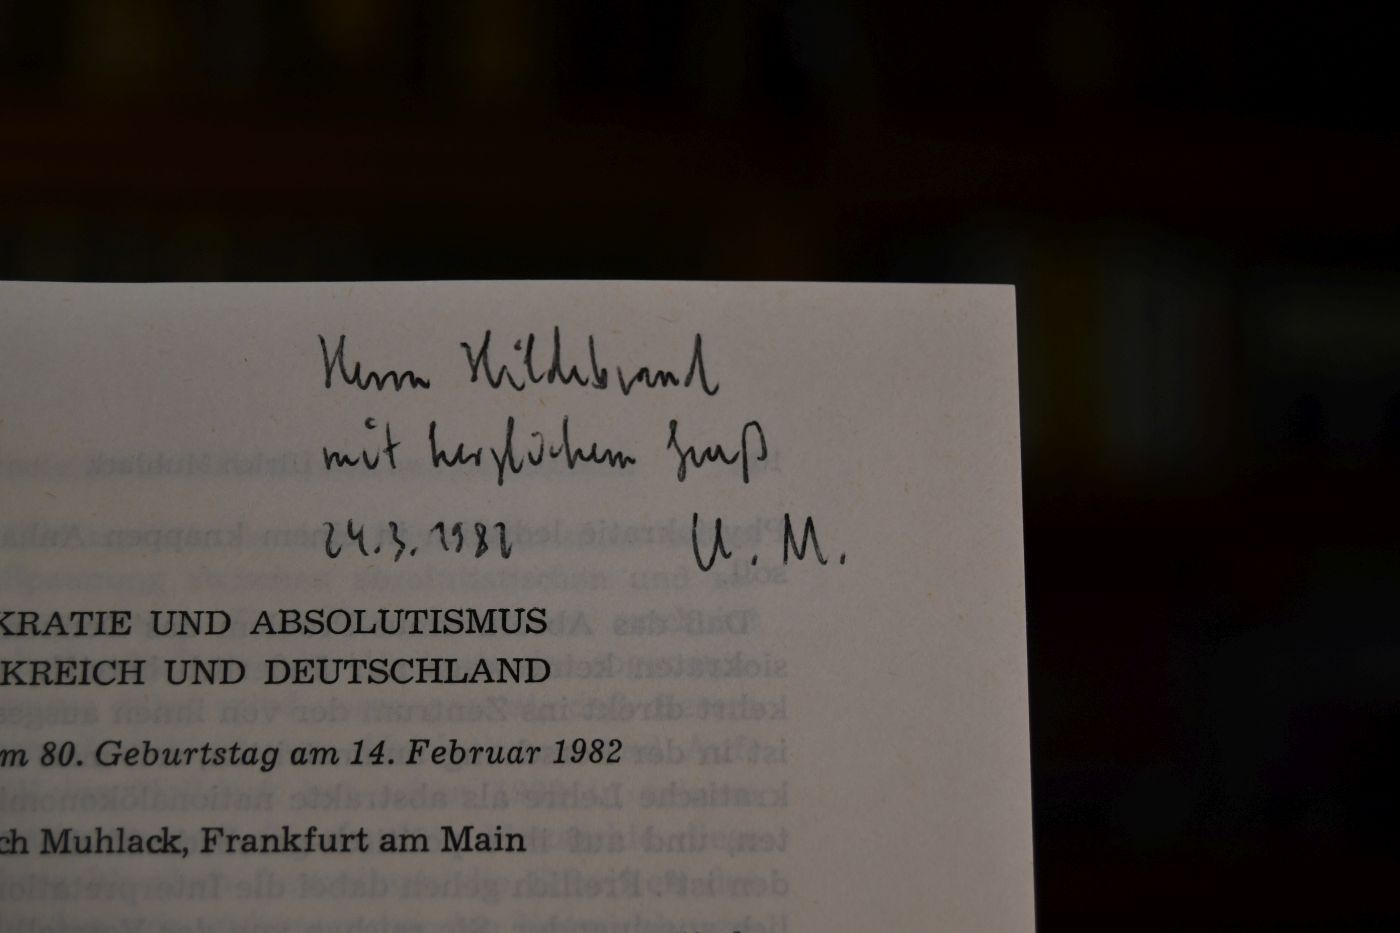 Herrn Hildebrand
mit herzlichem Gruß
24.3.1982 U. M.
KRATIE UND ABSOLUTISMUS
KREICH UND DEUTSCHLAND
m 80. Geburtstag am 14. Februar 1982
ch Muhlack, Frankfurt am Main